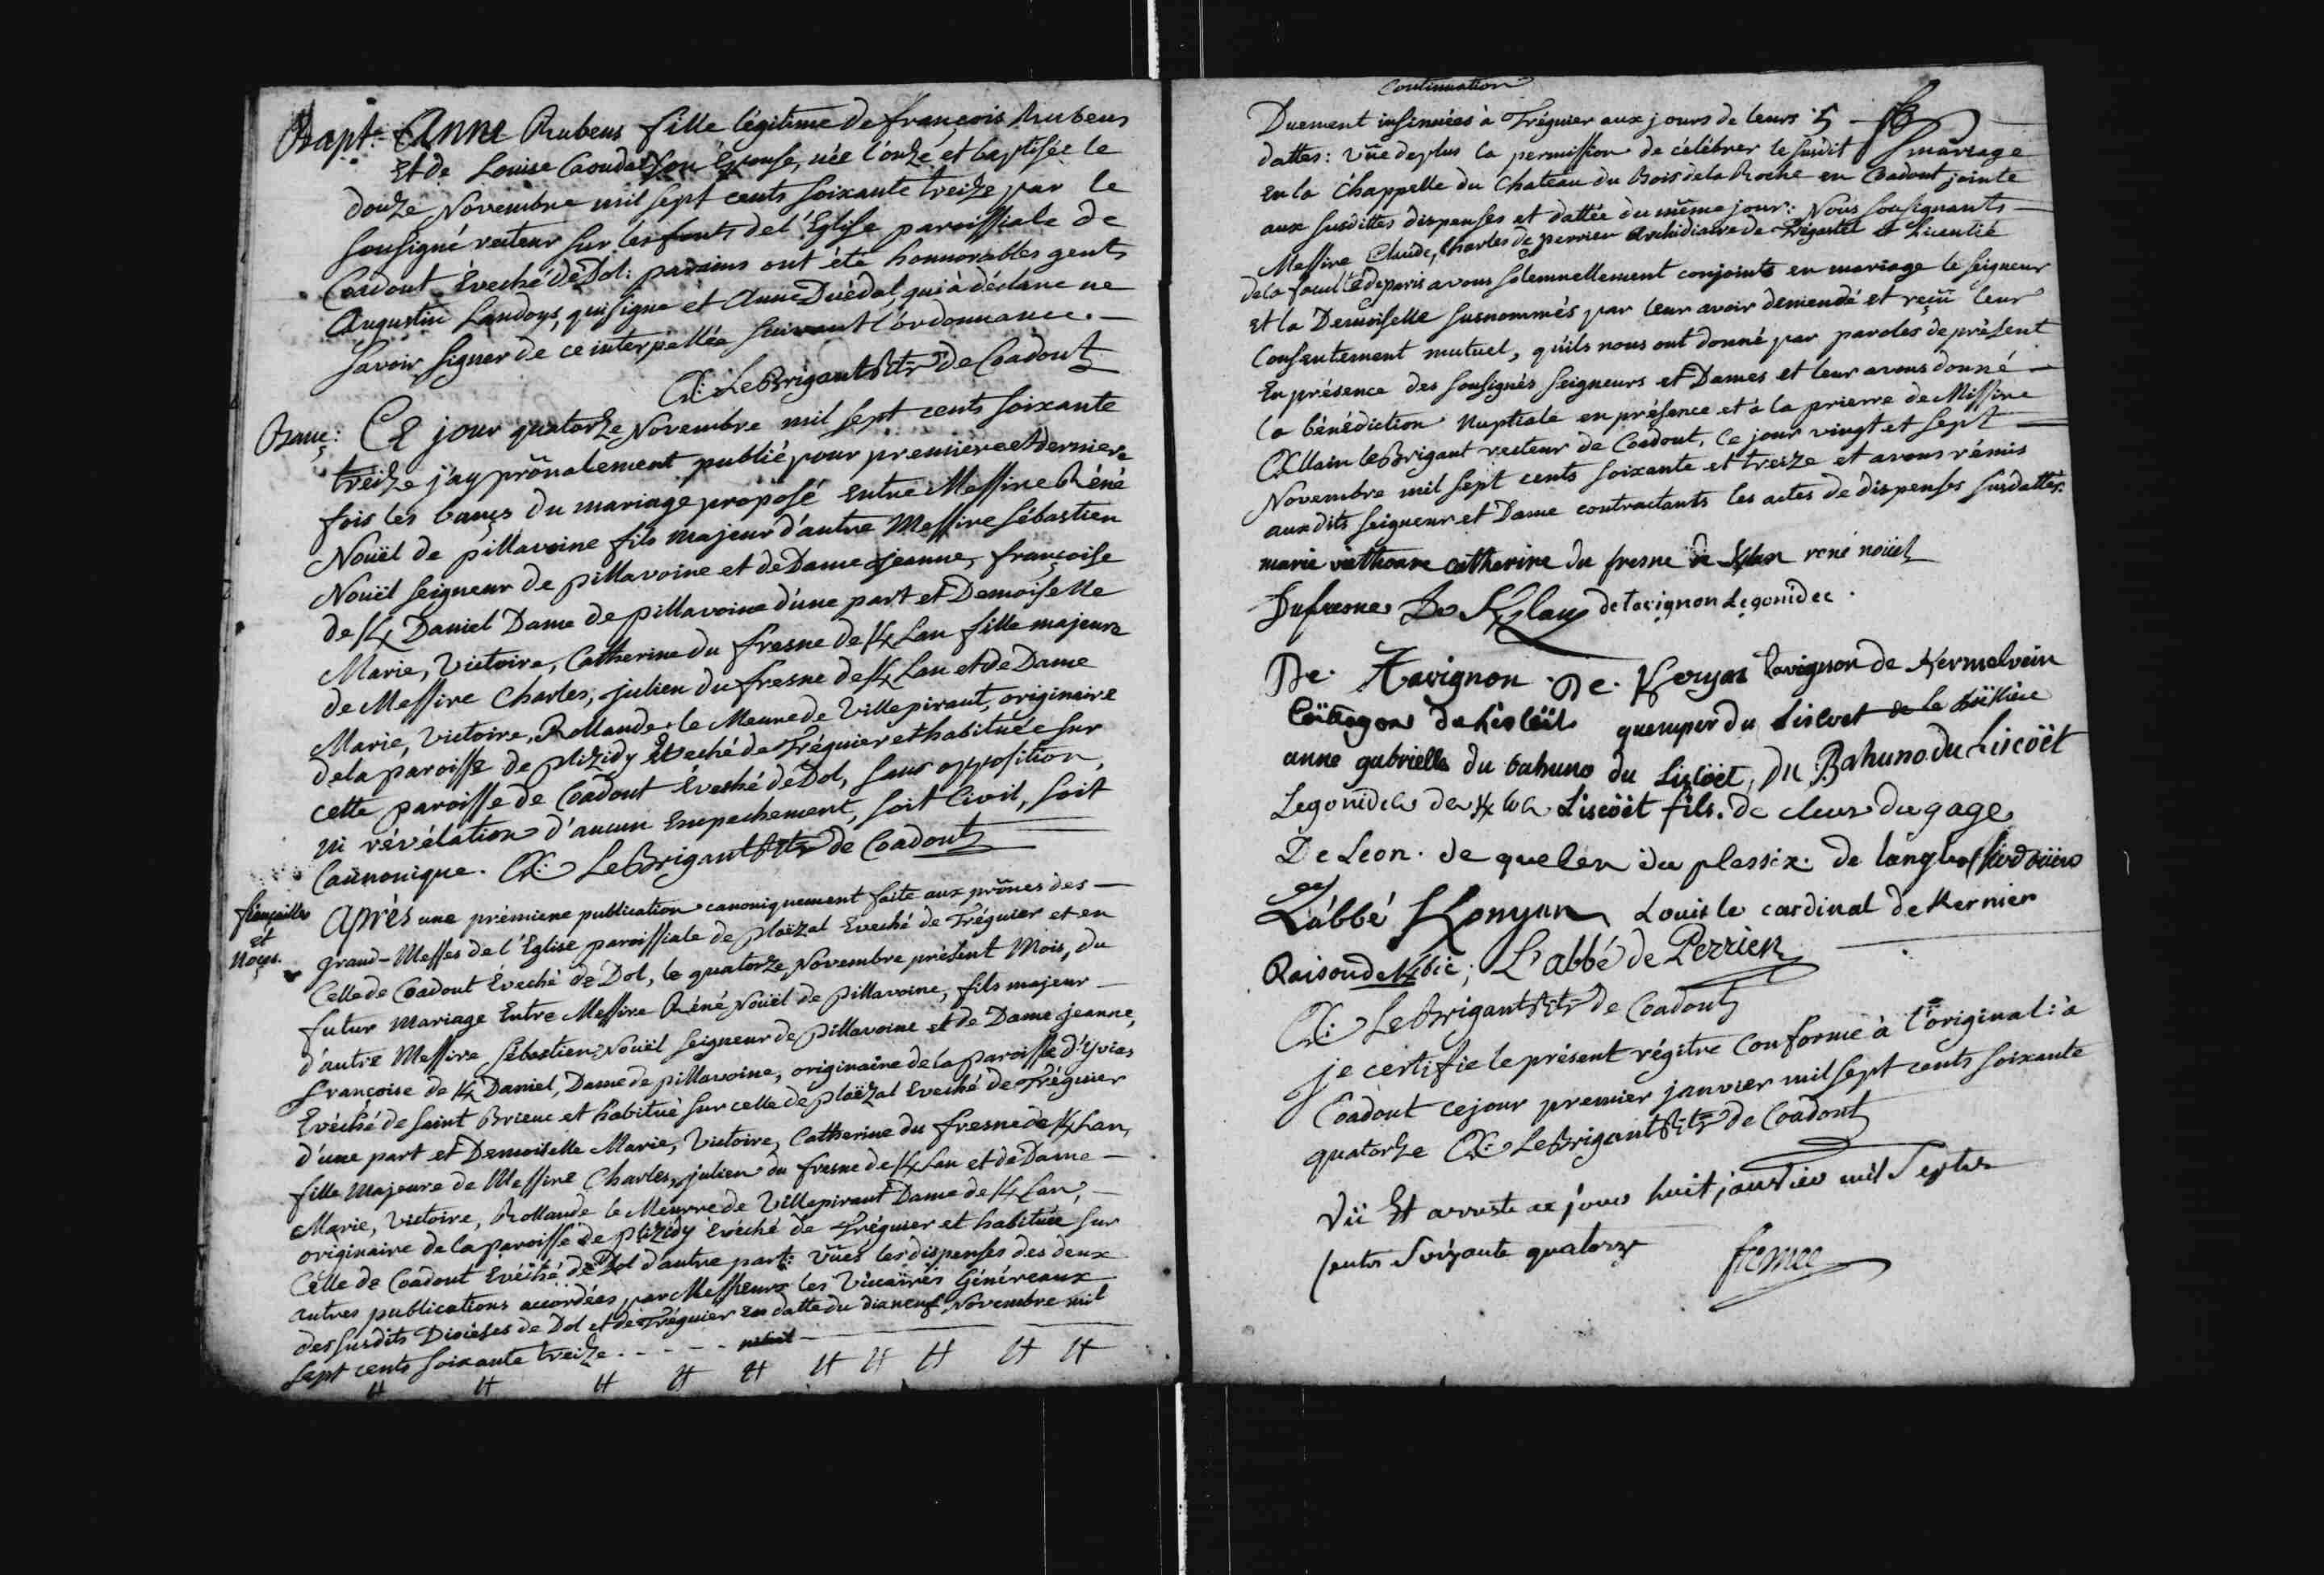 Bapt. Anne Rubeus fille légitime de françois Rubeus
Et de Louise Caoudal son Epouse, née l'onze et baptisée le
douze Novembre mil sept cents soixante treize par le
sousigné recteur sur les fonts de l'Eglise paroissiale de
Coadout Èveché de Dol: parains ont été honnorables gents
Augustin Landoys, qui signe et Anne Duédal, qui à déclaré ne
savoir signer de ce interpellée suivant l'ordonnance. —
A: LeBrigant Rtr de Coadout
Banç: Ce jour quatorze Novembre mil sept cents soixante
treize j'ay prônalement publié pour premiere et derniere
fois les bançs du mariage proposé entre Messire Réné
Nouël de pillavoine fils majeur d'autre Messire Sébastien
Nouël seigneur de pillavoine et de Dame Jeanne, françoise
de K Daniel Dame de pillavoine d'une part et Demoiselle
Marie, Victoire, Catherine du fresne de K Lan fille majeure
de Messire Charles, julien du fresne de K Lan et de Dame
Marie, Victoire, Rollande le Meurre de Villepirant, originaire
de la paroisse de plizidy Eveché de Tréguier et habituée sur
cette paroisse de Coadout Èveché de Dol, sans opposition,
ni révélation d'aucun Empechement, soit Civil, soit
Caünonique. A: LeBrigant Rtr de Coadout
fiençailles et Noçes. Après une prémiere publication canoniquement faite aux prônes des —
grand-Messes de l'Eglise paroissiale de ploëzal Eveché de Tréguier et en
Celle de Coadout Èveché de Dol, le quatorze Novembre présent Mois, du
futur Mariage Entre Messire Réné Nouël de pillavoine, fils majeur —
d'autre Messire Sébastien Nouël seigneur de pillavoine et de Dame Jeanne,
Françoise de K Daniel, Dame de pillavoine, originaire de la paroisse d'Yvias
Evéché de Saint Brieuc et habitué sur celle de ploëzal Eveché de Tréguier
d'une part et Demoiselle Marie, Victoire, Catherine du fresne de K Lan,
fille Majeure de Messire Charles, julien du fresne de K Lan et de Dame —
Marie, Victoire, Rollande le Meurre de Villepirant Dame de K Lan, —
originaire de la paroisse de plizidy Evéché de Tréguier et habituée sur
Celle de Coadout Evéché de Dol d'autre part: Vües les dispenses des deux
autres publications accordées par Messieurs les Vicaires Généreaux
des susdits Diocèses de Dol et de Tréguier en datte du dixneuf Novembre mil
sept cents soixante treize. - - - -
Continuation
Duement insinuées à Tréguier aux jours de leurs 5
dattes: Vüe de plus la permission de célébrer le susdit mariage
en la Chappelle du Chateau du Bois de la Roche en Coadout jointe
aux susdittes dispenses et dattée du même jour: Nous sousignants —
Messire Claude, Charles de perrien Archidiacre de Trégastel et Licentié
de la faculté de paris avons solemnellement conjoints en mariage le seigneur
et la Demoiselle susnommés par leur avoir demendé et reçü leur
Consentement mutuel, qu'ils nous ont donné par paroles de présent
En présence des sousignés seigneurs et Dames et leur avons donné —
la bénédiction Nuptiale en présence et à la prierre de Messire
Allain leBrigant recteur de Coadout, Ce jour vingt et sept —
Novembre mil sept cents soixante et treize et avons rémis
aux dits seigneur et Dame contractants les actes de dispenses susdattés.
marie victhoire catherine du fresne de Klan rené noüel
Dufresne De Klan de tavignon Legonidec.
De. Tavignon. De. Keryon tavignon de Kermelvein
de Liscöit quemper du Liscoet
anne gabrielle du bahuno du Liscoët, Du Bahuno du Liscöët
Legonidec de K Liscöët fils. de cleux du gage
De Leon. de quelen du plessix. de langle
L'abbé Konyan Louis le cardinal de Kernier
Raison de K bic; L'abbé de Perrien
A: LeBrigant Rtr de Coadout
je certifie le présent régitre Conforme à l'original: à
Coadout ce jour premier janvier mil sept cents soixante
quatorze A: LeBrigant Rtr de Coadout
Vü Et arresté ce jour huit janvier mil Sept
Cents Soixante quatorze